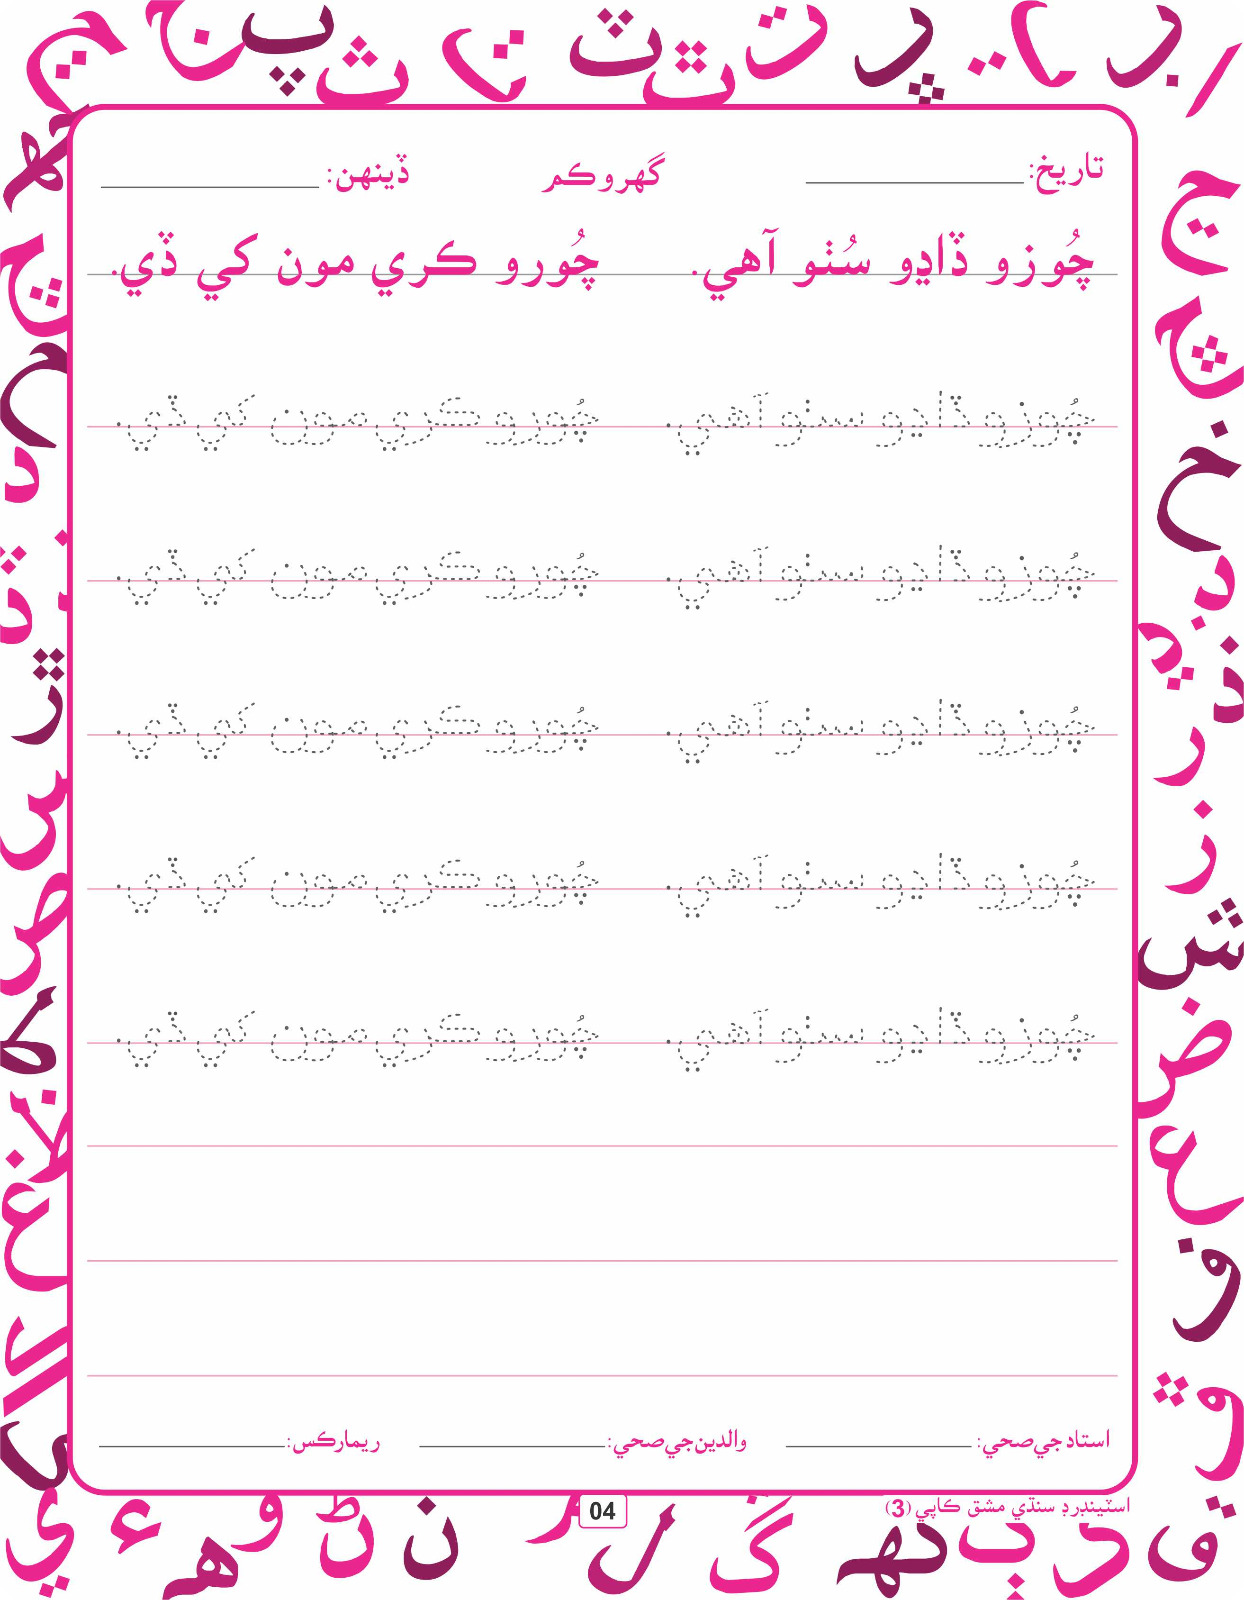 تاريخ: گهرو ڪم ڏينهن:
چُوزو ڏاڍو سُٺو آهي. چُورو ڪري مون کي ڏي.
چُوزو ڏاڍو سٺو آهي. چُورو ڪري مون کي ڏي.
چُوزو ڏاڍو سٺو آهي. چُورو ڪري مون کي ڏي.
چُوزو ڏاڍو سٺو آهي. چُورو ڪري مون کي ڏي.
چُوزو ڏاڍو سٺو آهي. چُورو ڪري مون کي ڏي.
چُوزو ڏاڍو سٺو آهي. چُورو ڪري مون کي ڏي.
استاد جي صحي: والدين جي صحي: ريمارڪس:
اسٽينڊرڊ سنڌي مشق ڪاپي (3)
04